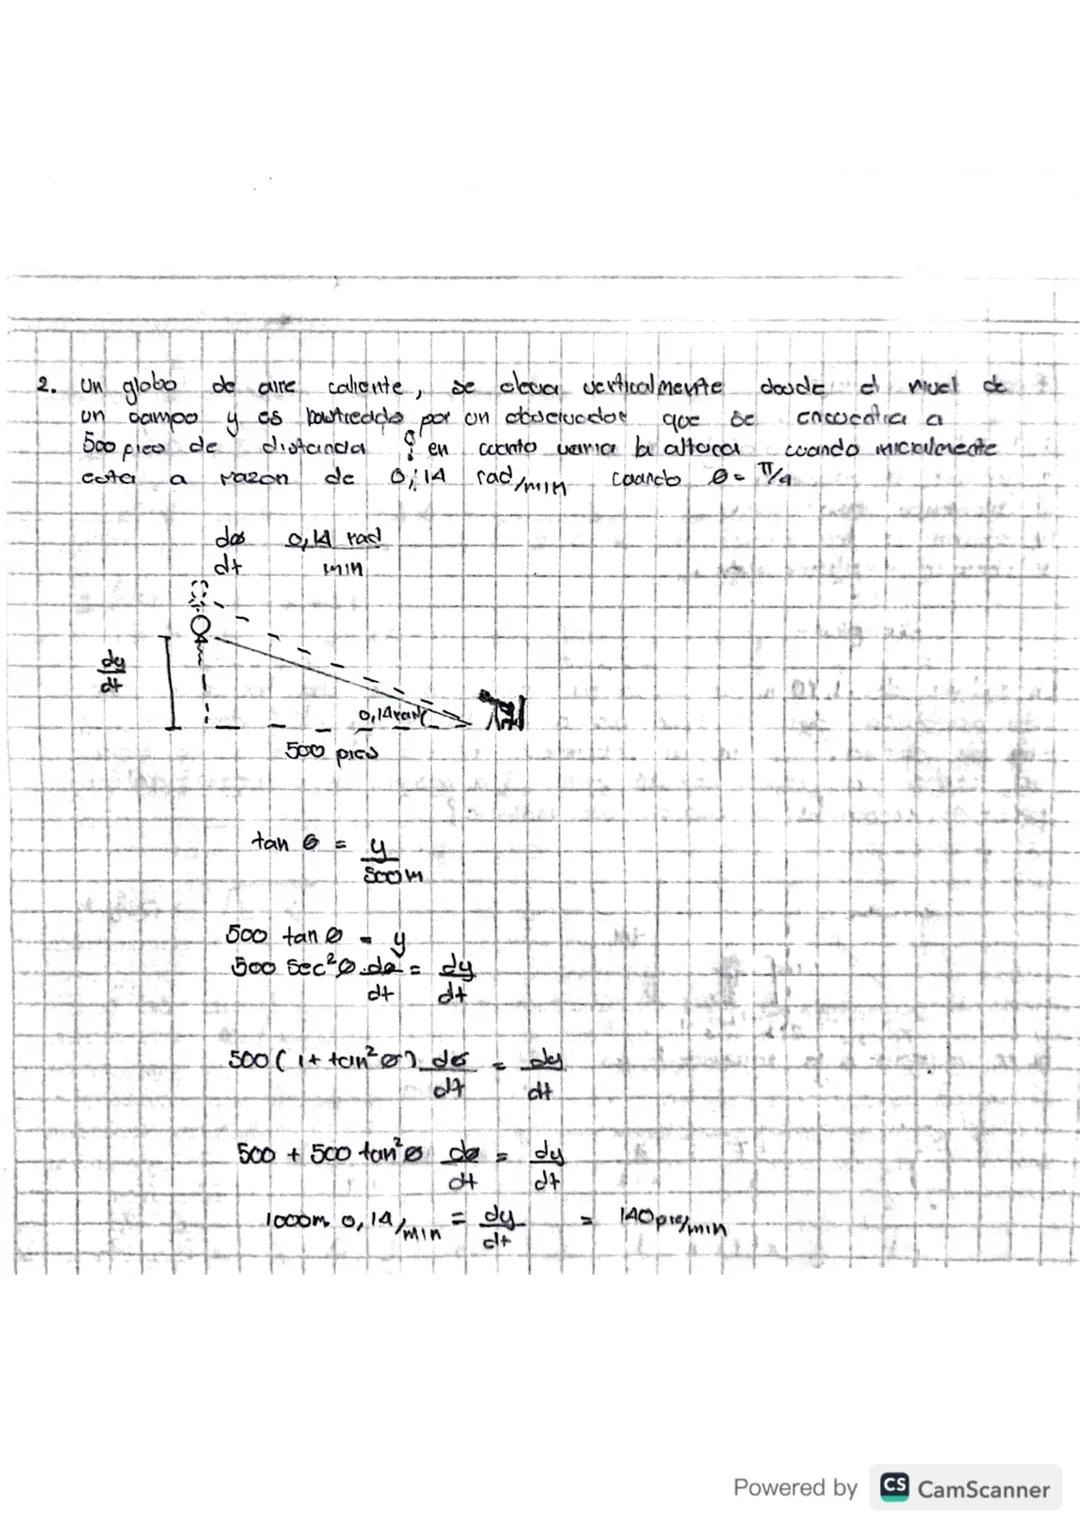 2. Un globo de aire caliente, se eleva verticalmente desde el nivel de
un campo y es rastreado por un observador que se encuentra a
500 pies de distancia ¿ en cuanto varia la altura cuando inicialmente
esta a razon de 0,14 rad/min cuando θ = π/4
dθ 0,14 rad
dt min
dy
dt
0,14 rad
500 pies
tan θ = y
500 m
500 tan θ = y
500 sec²θ . dθ = dy
dt dt
500 ( 1 + tan²θ ) dθ = dy
dt dt
500 + 500 tan²θ dθ = dy
dt dt
1000m. 0,14/min = dy = 140 pie/min
dt
Powered by CS CamScanner